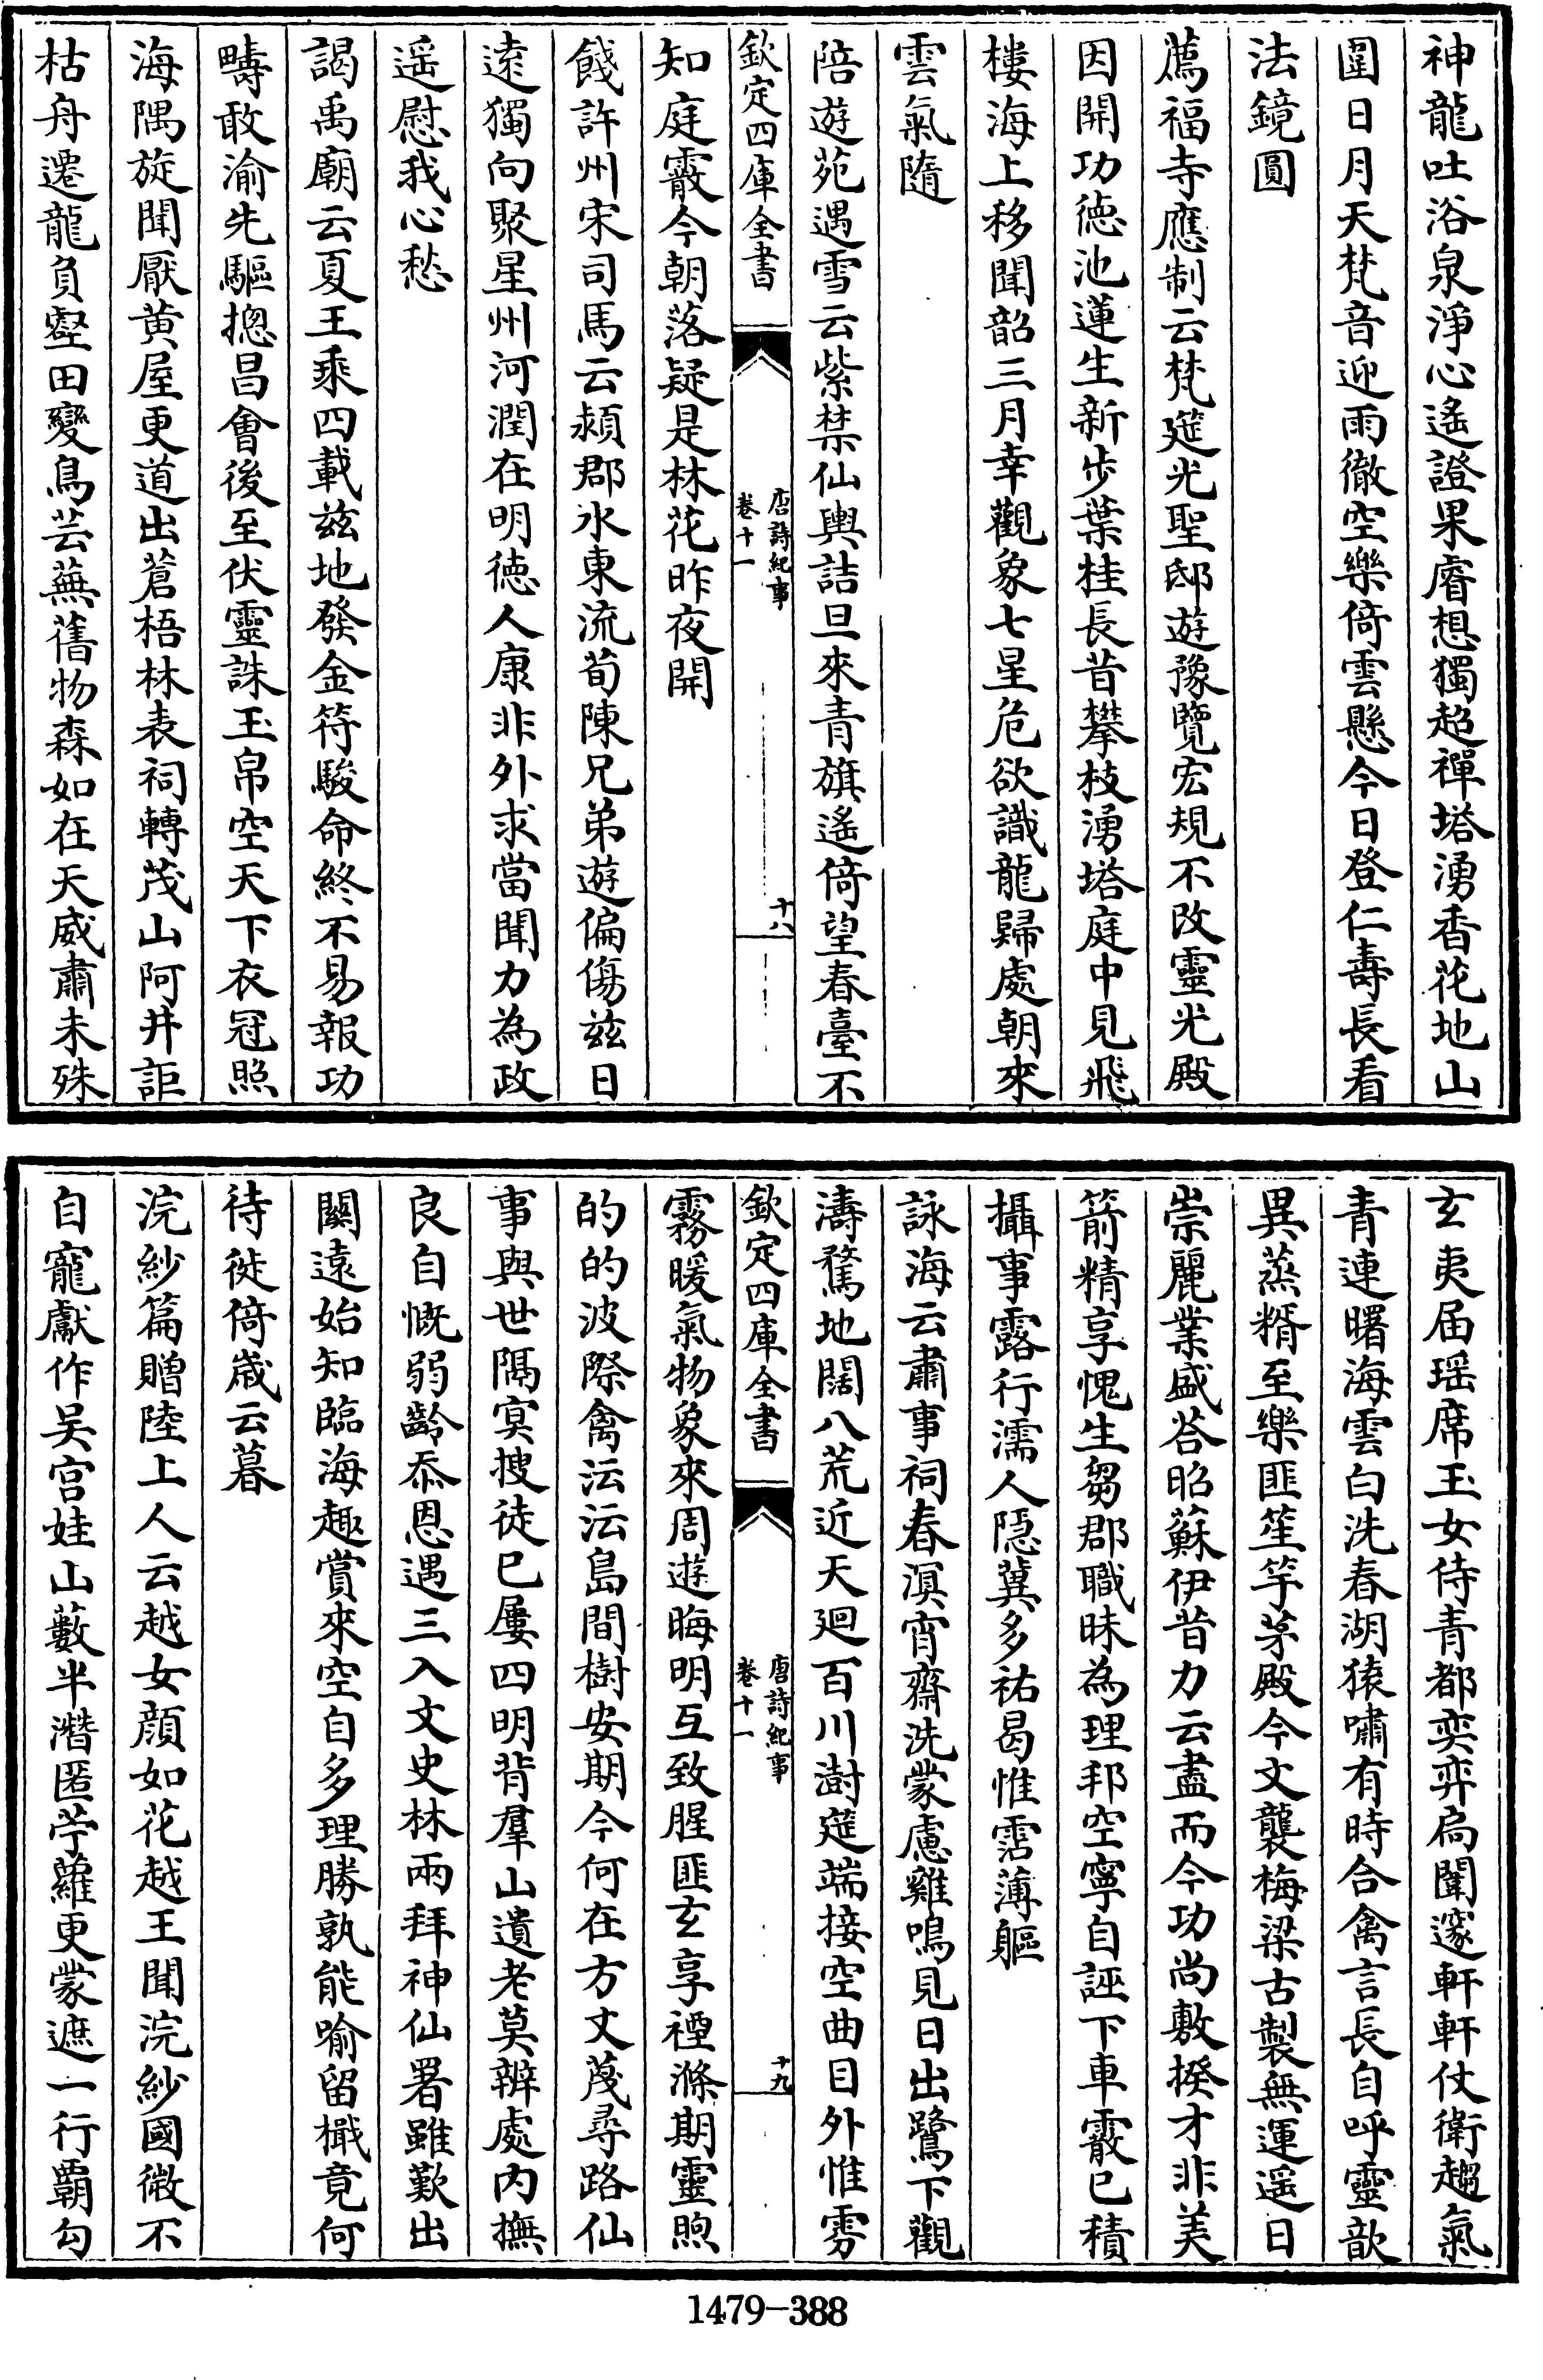 神龍吐浴泉淨心遙證果睿想獨超禪塔湧香花地山
圍日月天梵音迎雨徹空樂倚雲懸今日登仁壽長看
法鏡圓
薦福寺應制云梵筵光聖邸遊豫覽宏規不改靈光殿
因開功徳池蓮生新步葉桂長昔攀枝湧塔庭中見飛
樓海上移聞韶三月幸觀象七星危欲識龍歸處朝來
雲氣隨
陪遊苑遇雪云紫禁仙輿詰旦來青旗遙倚望春臺不
欽定四庫全書
唐詩紀事
卷十一
十八
知庭霰今朝落疑是林花昨夜開
餞許州宋司馬云潁郡水東流荀陳兄弟遊偏傷兹日
逺獨向聚星州河潤在明徳人康非外求當聞力為政
遥慰我心愁
謁禹廟云夏王乘四載兹地發金符駿命終不易報功
疇敢渝先驅摠昌會後至伏靈誅玉帛空天下衣冠照
海隅旋聞厭黄屋更道出蒼梧林表祠轉茂山阿井詎
枯舟遷龍負壑田變鳥芸蕪舊物森如在天威肅未殊
玄夷届瑶席玉女侍青都奕弈扃闈邃軒軒仗衛趨氣
青連曙海雲白洗春湖猿嘯有時合禽言長自呼靈歆
異蒸糈至樂匪笙竽茅殿今文襲梅梁古製無運遥日
崇麗業盛荅昭蘇伊昔力云盡而今功尚敷揆才非美
箭精享愧生芻郡職昧為理邦空寧自誣下車霰已積
攝事露行濡人隱冀多祐曷惟霑薄軀
詠海云肅事祠春溟宵齋洗蒙慮雞鳴見日出鷺下觀
濤騖地闊八荒近天迴百川澍筵端接空曲目外惟雰
欽定四庫全書
唐詩紀事
卷十一
十九
霧暖氣物象來周遊晦明互致腥匪玄享禋滌期靈煦
的的波際禽沄沄島間樹安期今何在方丈蔑尋路仙
事與世隔冥搜徒已屢四明背羣山遺老莫辨處内撫
良自慨弱齡忝恩遇三入文史林兩拜神仙署雖歎出
關遠始知臨海趣賞來空自多理勝孰能喻留檝竟何
待徙倚嵗云暮
浣紗篇贈陸上人云越女顔如花越王聞浣紗國微不
自寵獻作吴宫娃山藪半潛匿苧蘿更蒙遮一行覇勾
1479-388